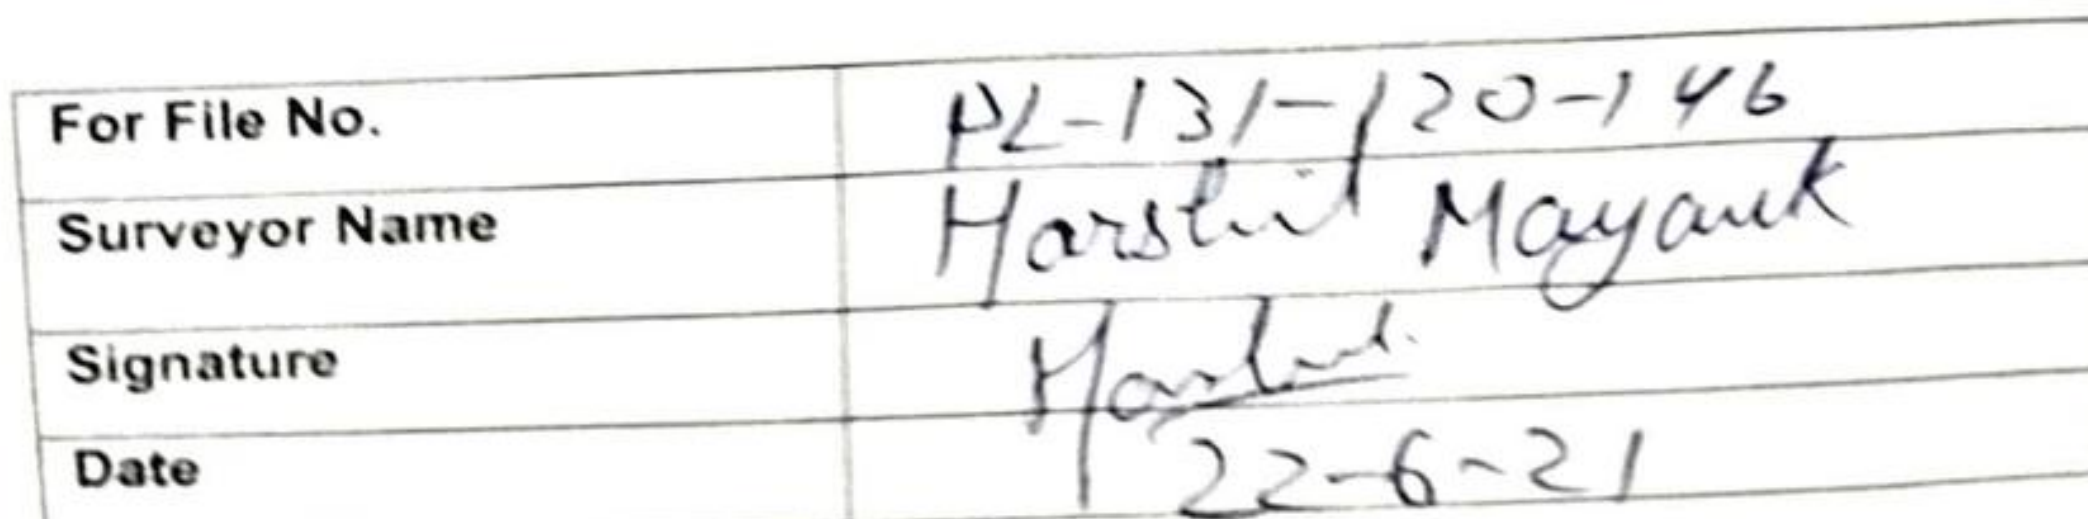 For File No. PL-131-120-146
Surveyor Name Harshit Mayank
Signature Harshit
Date 22-6-21